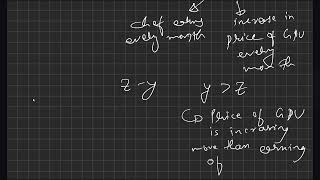 chef earns
every month
increase in
price of GPU
every
month
z - y
y > z
Price of GPU
is increasing
more than earning
of